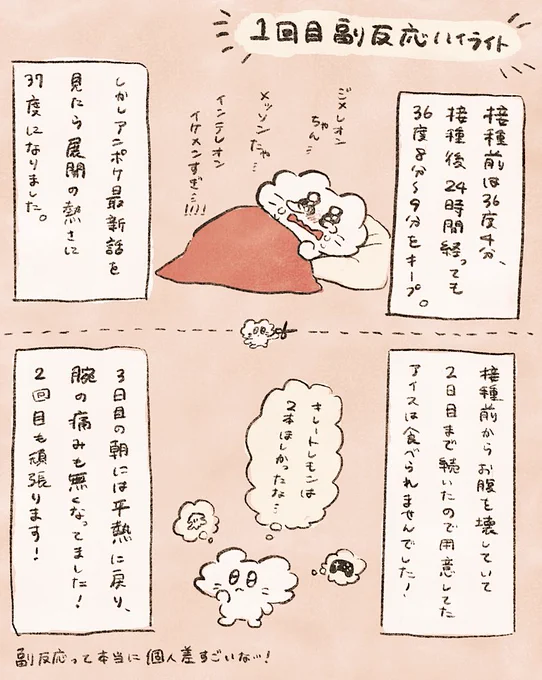 1回目副反応ハイライト
接種前は36度4分、
接種後24時間経っても
36度8分〜9分をキープ。
ジメレオン
ちゃん…
メッソンたや…
インテレオン
イケメンすぎ…!!!!
しかしアンポケ最新話を
見たら展開の熱さに
37度になりました。
接種前からお腹を壊していて
2日目まで続いたので用意してた
アイスは食べられませんでした!
キレートレモンは
2本ほしかったな…
3日目の朝には平熱に戻り、
腕の痛みも無くなってました!
2回目も頑張ります!
副反応って本当に個人差すごいな…!